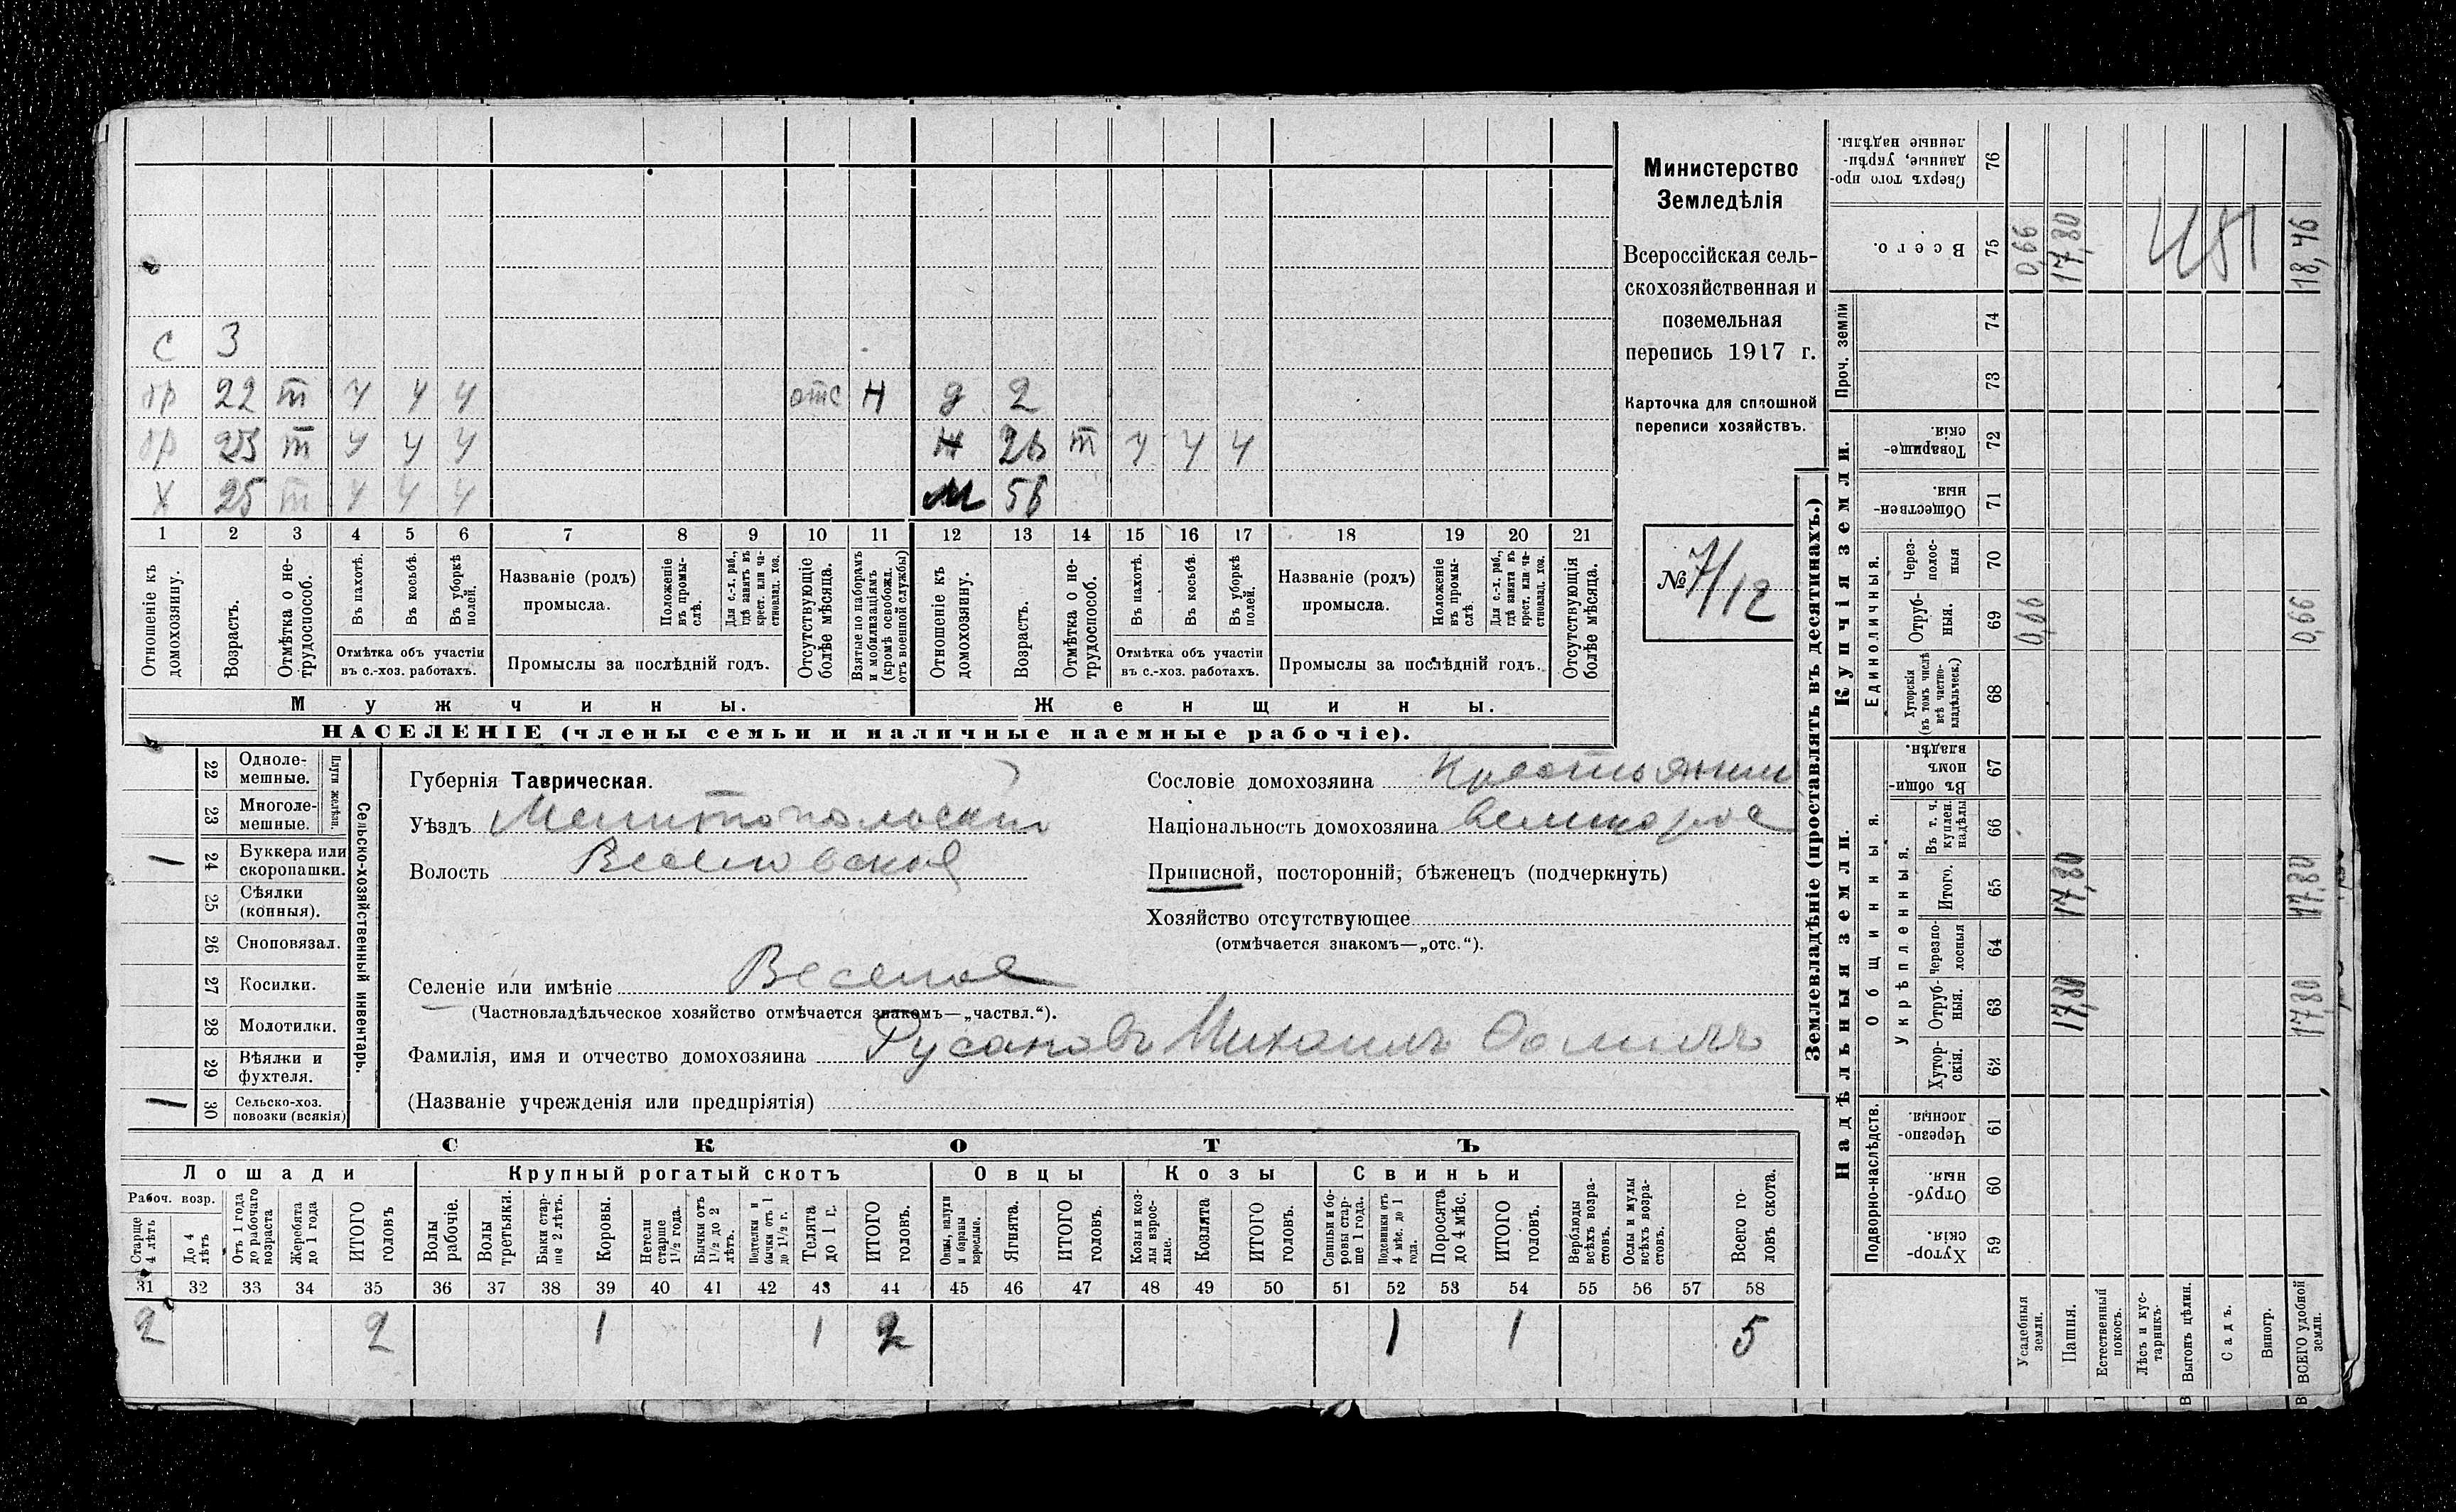 с 3
бр 22 т ч ч ч отс н д 2
бр 23 т ч ч ч н 26 т ч ч ч
х 25 т ч ч ч м 56
1 2 3 4 5 6 7 8 9 10 11 12 13 14 15 16 17 18 19 20 21
Отношеніе къ домохозяину.
Возрастъ.
Отмѣтка о не-
трудоспособ.
Въ пахотѣ.
Въ косьбѣ.
Въ уборкѣ
полей.
Отмѣтка объ участіи
въ с.-хоз. работахъ.
Названіе (родъ)
промысла.
Положеніе
въ промы-
слѣ.
Для с.-х. раб.,
гдѣ занятъ въ
крест. или ча-
стновлад. хоз.
Промыслы за послѣдній годъ.
Отсутствующіе
болѣе мѣсяца.
Взятые по наборамъ
и мобилизаціямъ
(кромѣ освобожд.
отъ военной службы)
Отношеніе къ
домохозяину.
Возрастъ.
Отмѣтка о не-
трудоспособ.
Въ пахотѣ.
Въ косьбѣ.
Въ уборкѣ
полей.
Отмѣтка объ участіи
въ с.-хоз. работахъ.
Названіе (родъ)
промысла.
Положеніе
въ промы-
слѣ.
Для с.-х. раб.,
гдѣ занята въ
крест. или ча-
стновлад. хоз.
Промыслы за послѣдній годъ.
Отсутствующія
болѣе мѣсяца.
Мужчины.
Женщины.
НАСЕЛЕНІЕ (члены семьи и наличные наемные рабочіе).
Министерство
Земледѣлія
Всероссійская сель-
скохозяйственная и
поземельная
перепись 1917 г.
Карточка для сплошной
переписи хозяйствъ.
№ 7/12
22 Одноле-
мешные.
23 Многоле-
мешные.
Плуги желѣзн.
1 24 Буккера или
скоропашки.
25 Сѣялки
(конныя).
26 Сноповязал.
27 Косилки.
28 Молотилки.
29 Вѣялки и
фухтеля.
1 30 Сельско-хоз.
повозки (всякія)
Сельско-хозяйственный инвентарь.
Губернія Таврическая.
Уѣздъ Мелитопольскій
Волость Веселовская
Селеніе или имѣніе Веселое
(Частновладѣльческое хозяйство отмѣчается знакомъ—„частвл.“).
Фамилія, имя и отчество домохозяина Русановъ Михаилъ
(Названіе учрежденія или предпріятія)
Сословіе домохозяина Крестьянин
Національность домохозяина великорос
Приписной, посторонній, бѣженецъ (подчеркнуть)
Хозяйство отсутствующее
(отмѣчается знакомъ—„отс.“).
СКОТЪ
Лошади
Крупный рогатый скотъ
Овцы
Козы
Свиньи
Рабоч. возр.
Старше
4 лѣтъ
До 4
лѣтъ
Отъ 1 года
до рабочаго
возраста
Жеребята
до 1 года
ИТОГО
головъ
Волы
рабочіе.
Волы
третьяки.
Быки стар-
ше 2 лѣтъ.
Коровы.
Нетели
старше
1½ года.
Бычки отъ
1½ до 2
лѣтъ.
Подтелки и
бычки отъ 1
до 1½ г.
Телята
до 1 г.
ИТОГО
головъ.
Овцы, валухи
и бараны
взрослые.
Ягнята.
ИТОГО
головъ.
Козы и коз-
лы взрос-
лые.
Козлята
ИТОГО
головъ.
Свиньи и бо-
ровы стар-
ше 1 года.
Подсвинки отъ
4 мѣс. до 1
года.
Поросята
до 4 мѣс.
ИТОГО
головъ.
Верблюды
всѣхъ возра-
стовъ.
Ослы и мулы
всѣхъ возра-
стовъ.
Всего го-
ловъ скота.
31 32 33 34 35 36 37 38 39 40 41 42 43 44 45 46 47 48 49 50 51 52 53 54 55 56 57 58
2 2 1 1 2 1 1 5
Землевладѣніе (проставлять въ десятинахъ.)
Купчія земли.
Надѣльныя земли.
Проч. земли
Единоличныя.
Общинныя.
Укрѣпленныя.
Подворно-наслѣдств.
Сверхъ того про-
данные, укрѣп-
ленные надѣлы.
76
Всего.
75 0,66 17,80 451 18,46
74
73
Товарище-
скія.
72
Обществен-
ныя.
71
Через-
полос-
ныя
70
Отруб-
ныя.
69 0,66 0,66
Хуторскія
(въ томъ числѣ
всѣ частно-
владѣльческ.)
68
Въ общин-
номъ
владѣн.
67
Въ т. ч.
куплен.
надѣлы
66
Итого.
65 17,80 17,80
черезпо-
лосныя
64
Отруб-
ныя.
63 17,80 17,80
Хутор-
скія.
62
Черезпо-
лосныя.
61
Отруб-
ныя.
60
Хутор-
скія.
59
Усадебныя
земли.
Пашня.
Естественный
покосъ.
Лѣсъ и кус-
тарникъ.
Выгонъ цѣлин.
Садъ.
Виногр.
ВСЕГО удобной
земли.